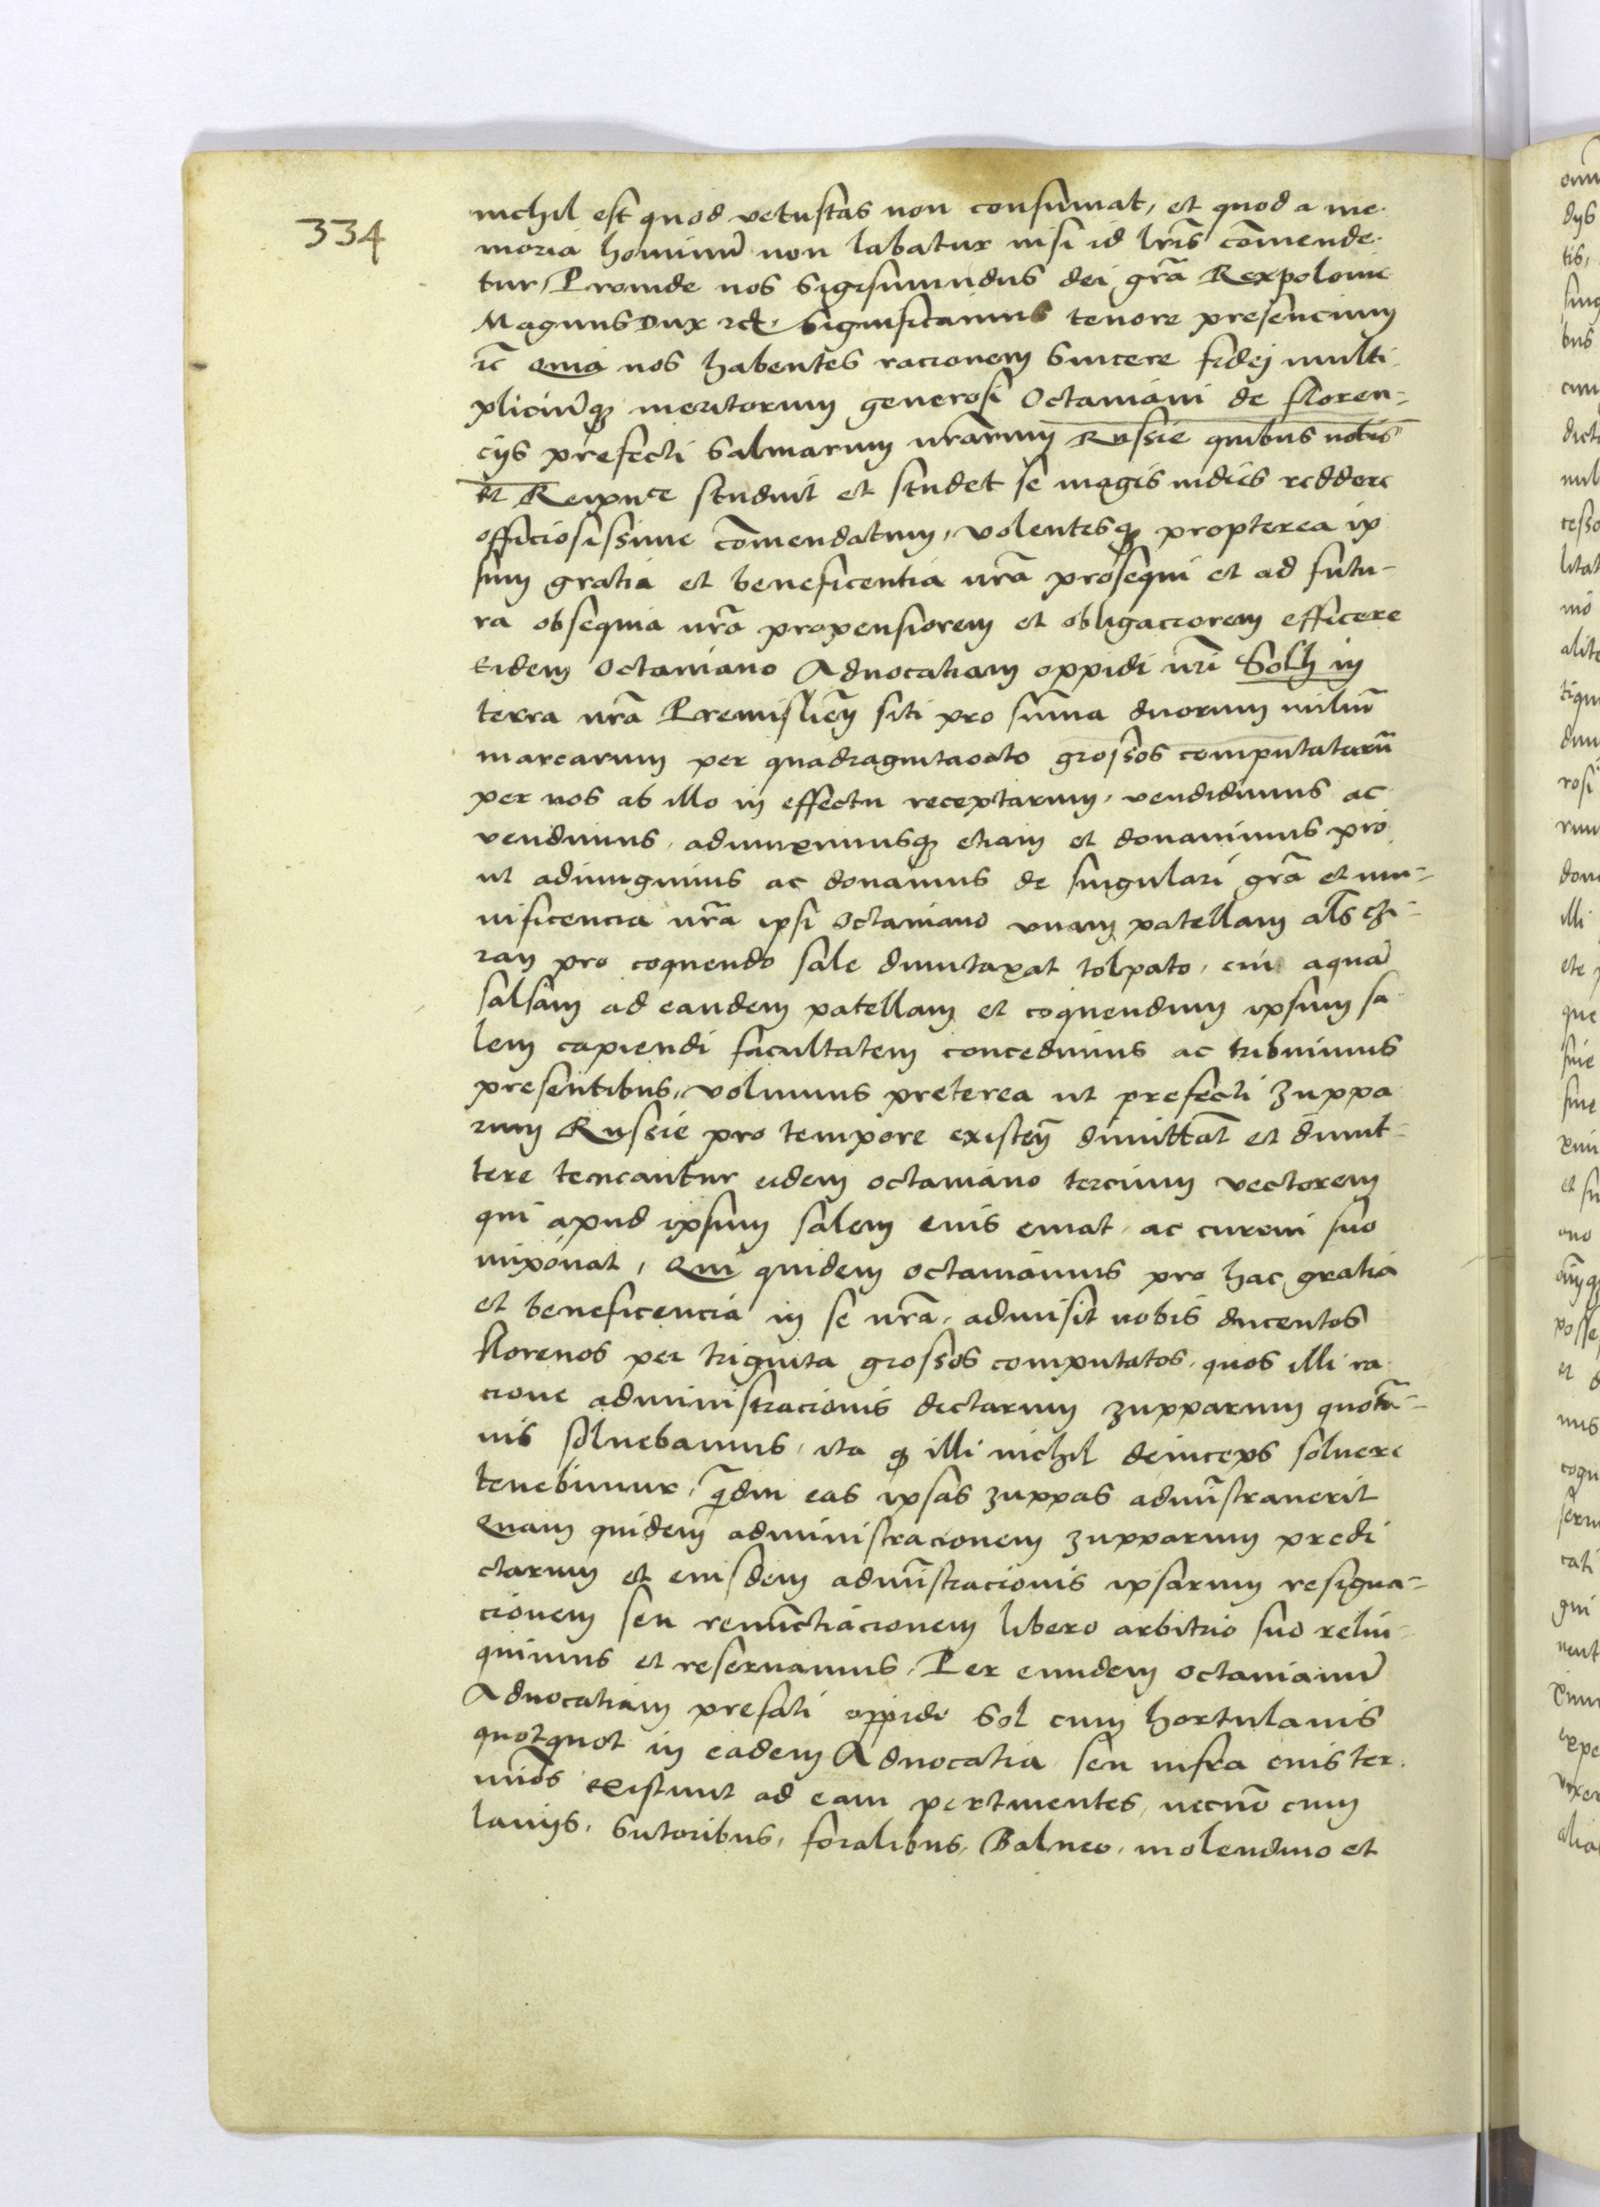 334
nichil est quod vetustas non consumat, et quod a me
moria hominũ non labatur nisi id lrĩs cõmende
tur, Proinde nos Sigismundus dei grã Rex polonie
Magnus Dux zcť, Significamus tenore presencium
zc̃ Quia nos habentes racionem sincere fidej multi
pliciũq; meritorum generosi Octaviani de floren-
cijs prefecti Salinarum nrãrum Russie quibus nobis
et Reipuce studuit et studet se magis indies reddere
officiosissime cõmendatum, volentesq; propterea ip
sum gratia et beneficentia nrã prosequi et ad futu-
ra obsequia nrã propensiorem et obligaciorem efficere
Eidem Octaviano Advocatiam oppidi nrĩ Solh in
terra nrã Premisliẽn siti pro sũma duorum miliũ
marcarum per quadragintaocto grossos computatarũ
per nos ab illo in effectu receptarum, vendidimus ac
vendimus, adiunximusq; etiam et donavimus pro
ut adiungimus ac donamus de singulari grã et mu-
nificencia nrã ipsi Octaviano unam patellam als czi-
ran pro coquendo sale dumtaxat tolpato, cui aquã
salsam ad eandem patellam et coquendum ipsum sa
lem capiendi facultatem concedimus ac tribuimus
presentibus, volumus preterea ut prefecti Zuppa
rum Russie pro tempore existeñ dimittãt et dimit-
tere teneantur eidem octaviano tercium vectorem
qui apud ipsum salem eius emat, ac currui suo
imponat, Qui quidem octavianus pro hac gratia
et beneficencia in se nrã, admisit nobis ducentos
florenos per triginta grossos computatos, quos illi ra
cione administracionis dictarum zupparum quotã-
nis solvebamus, ita q; illi nichil deinceps solvere
tenebimur, q̃diu eas ipsas zuppas admĩstraverit
Quam quidem administracionem zupparum predi
ctarum et eiusdem admĩstracionis ipsarum resigna-
cionem seu renũctiacionem libero arbitrio suo relin-
quimus et reservamus, Per eundem octavianũ
Advocatiam prefati oppidi Sol cum hortulanis
quotquot in eadem Advocatia seu infra eius ter
mĩos existunt ad eam pertinentes, necnõ cum
lanijs, Sutoribus, foralibus, Balneo, molendino et